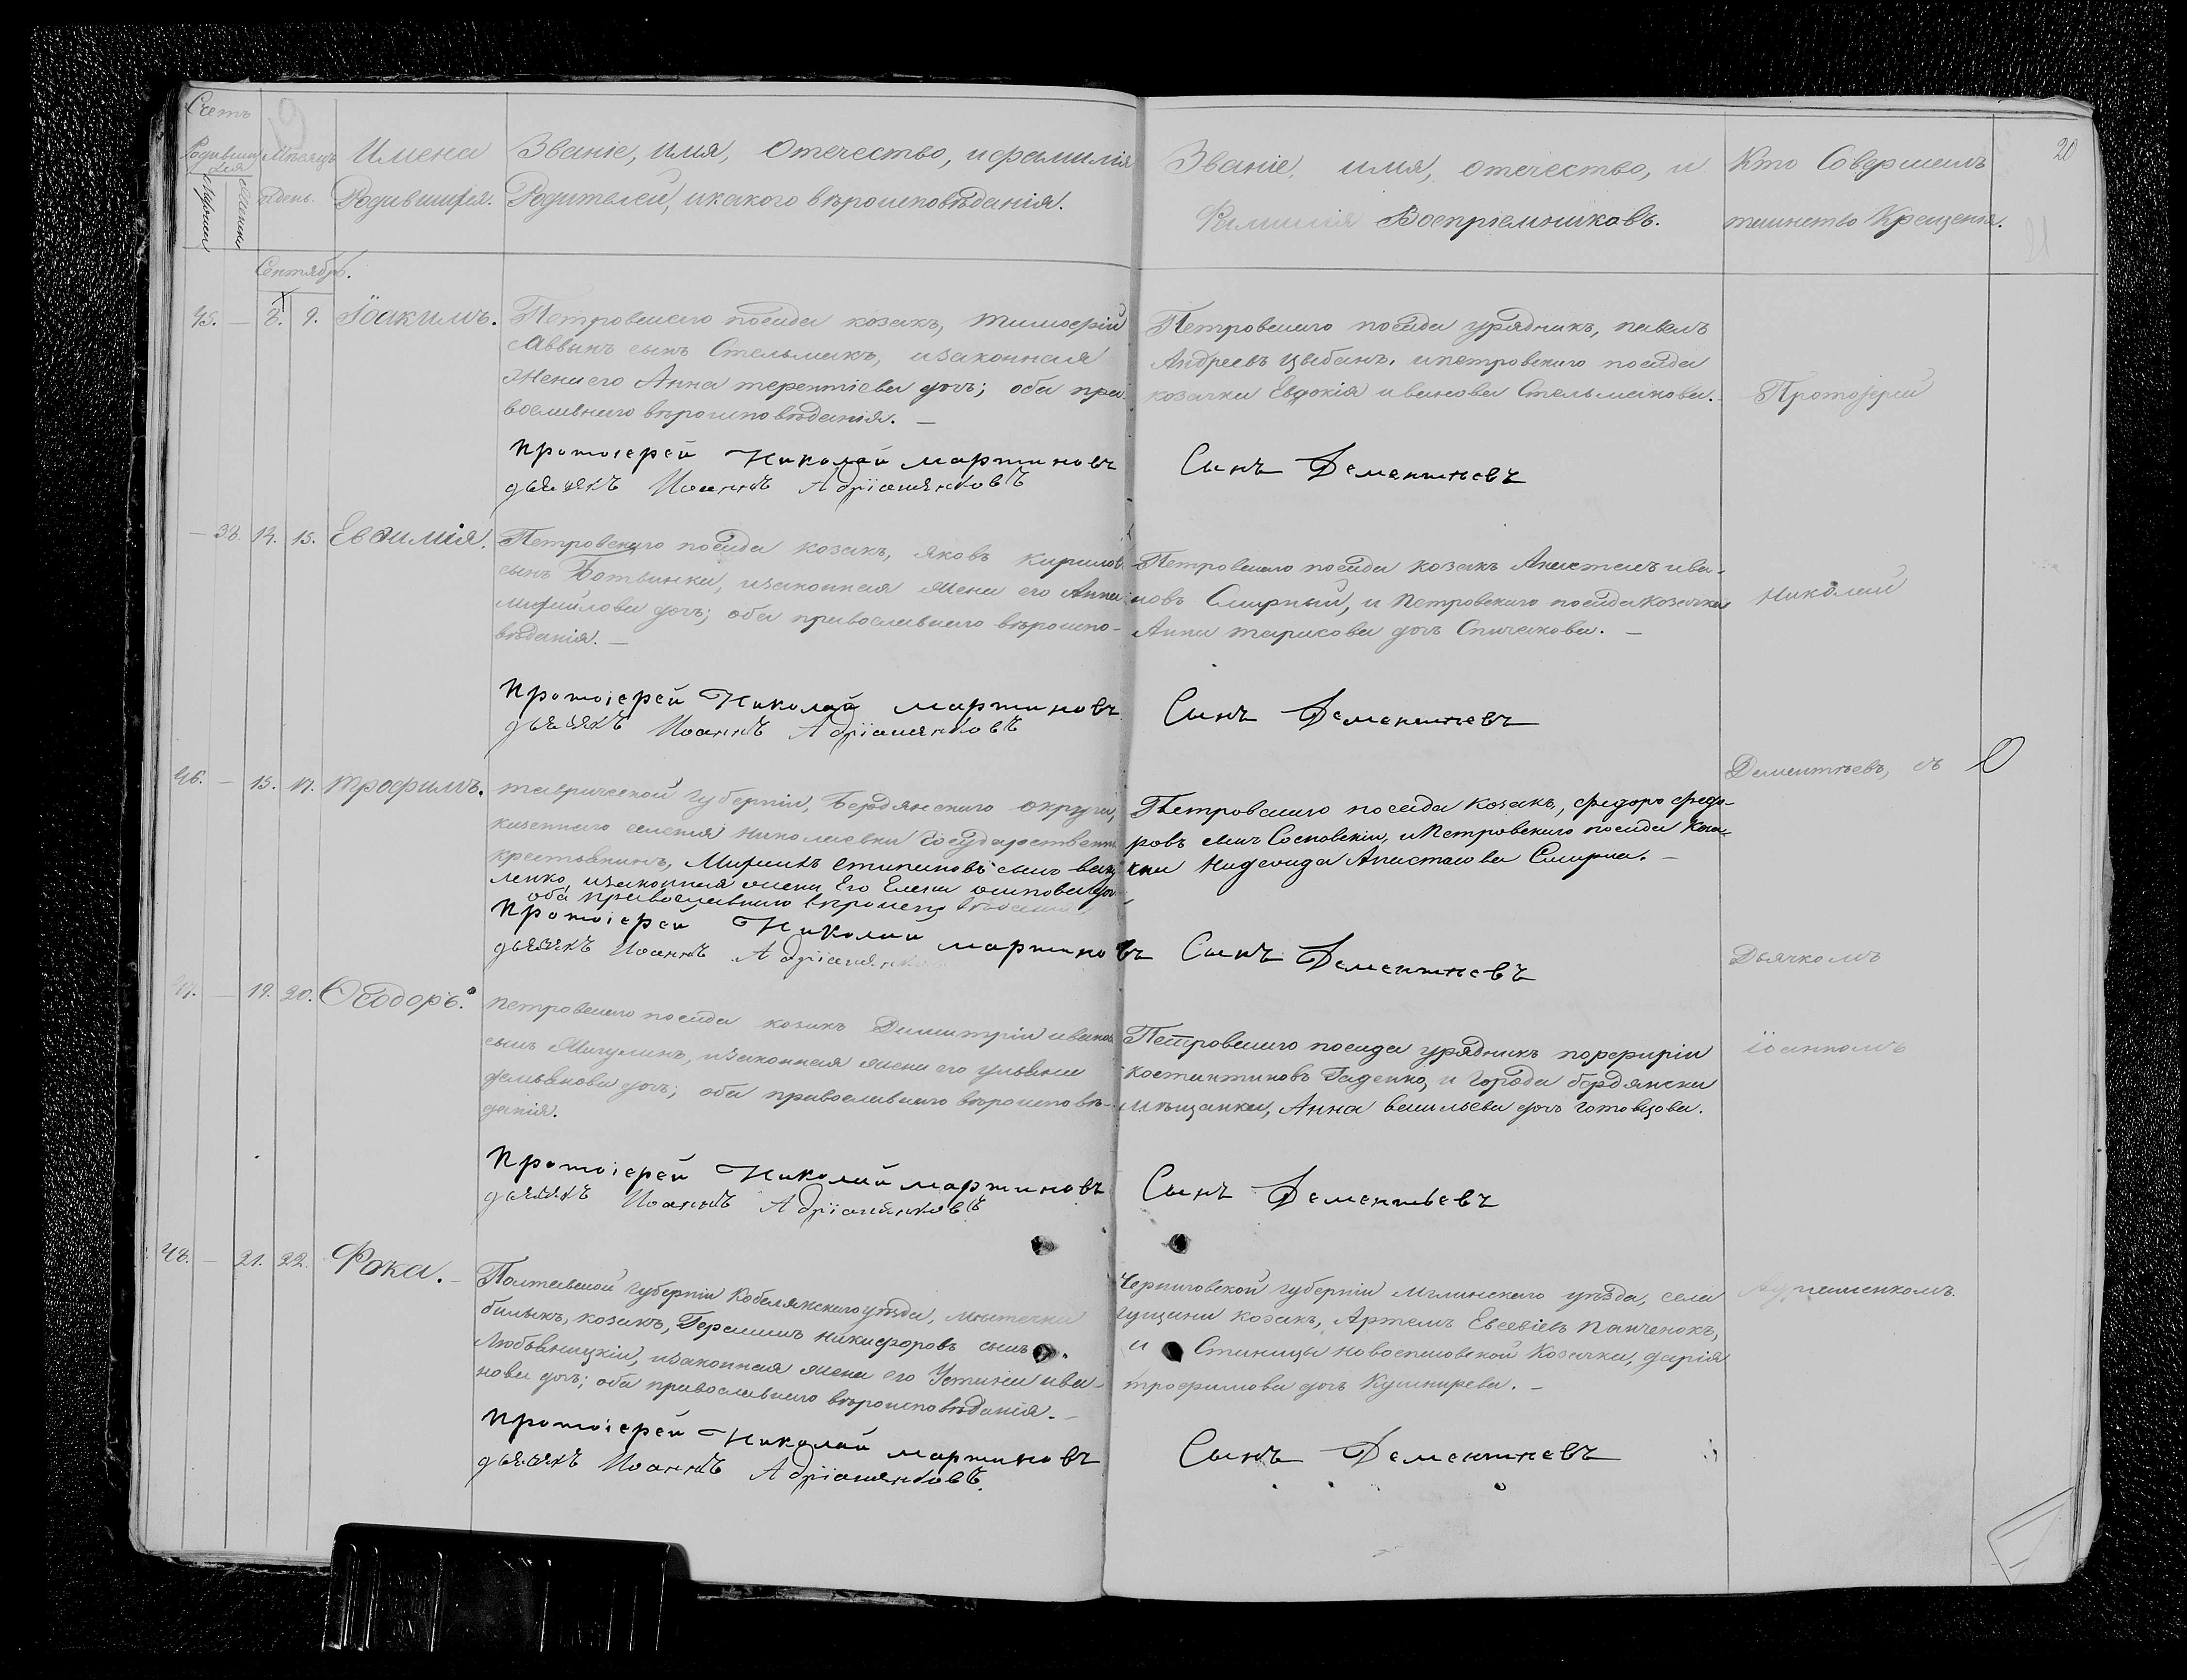 Счетъ
Родивших
ся
Мѣсяцъ
и день.
Имена
Родившихся.
Званіе, имя, отечество, и фамилія
Родителей, и какого вѣроисповѣданія.
Званіе, имя, отечество, и
Фамилія Воспріемниковъ.
Кто Совершилъ
таинство Крещенія.
20
Сентябрь.
45. — 8. 9. Іоакимъ.
Петровскаго посада козакъ, тимофей
Саввинъ сынъ Стельмахъ, и законная
Жена его Анна терентіева дочь; оба пра-
вославнаго вѣроисповѣданія. —
Протоіерей Николай мартиновъ
дьячекъ Иоаннъ Адріашенковъ
Петровскаго посада урядникъ, павелъ
Андреевъ Цыбань, и петровскаго посада
козачка Евдокія иванова Стельмахова.
Сынъ Дементьевъ
Протоіерей
— 38. 14. 15. Евѳимія.
Петровскаго посада козакъ, яковъ кириловъ
сынъ Ботвинка, и законная жена его Анна
михайлова дочь; оба православнаго вѣроиспо-
вѣданія. —
Протоіерей Николай мартиновъ
дьячекъ Иоаннъ Адріашенковъ
Петровскаго посада козакъ Анастасъ ива-
новъ Смирный, и Петровскаго посада козачка
Анна тарасова дочь Спичакова. —
Сынъ Дементьевъ
Николай
46. — 15. 17. трофимъ.
таврической губерніи, Бердянскаго округа,
казеннаго селенія николаевки Государственны
крестьянинъ, степановъ сынъ
ленко, и законная жена Его Елена осипова дочь
оба православнаго вѣроисповѣданія
Протоіерей Николай мартиновъ
дьячекъ Иоаннъ Адріашенковъ
Петровскаго посада козакъ, федоръ федо-
ровъ сынъ Сосновскій, и Петровскаго посада коза-
чка Надежда Анастасова Смирна. —
Сынъ Дементьевъ
Дементьевъ, съ
Дьячкомъ
47. — 19. 20. Ѳеодоръ.
петровскаго посада козакъ Димитрій ивановъ
сынъ Мигулинъ, и законная жена его ульяна
демьянова дочь; оба православнаго вѣроисповѣ-
данія.
Протоіерей Николай мартиновъ
дьячекъ Иоаннъ Адріашенковъ
Петровскаго посада урядникъ порфирій
костантиновъ Гаденко, и города бердянска
мѣщанка, Анна васильева дочь готовцова.
Сынъ Дементьевъ
іоанномъ
48. — 21. 22. Фока. —
Полтавской губерніи Кобелякскаго уѣзда, мѣстечка
билыкъ, козакъ, Герасимъ никифоровъ сынъ
Любавицкій, и законная жена его Устина ива-
нова дочь; оба православнаго вѣроисповѣданія. —
Протоіерей Николай мартиновъ
дьячекъ Иоаннъ Адріашенковъ.
Черниговской губерніи Мглинскаго уѣзда, села
гущина козакъ, Артемъ Евсевіевъ Панченокъ,
и Станицы новоспасовской Козачка, дарія
трофимова дочь Кушнирева. —
Сынъ Дементьевъ